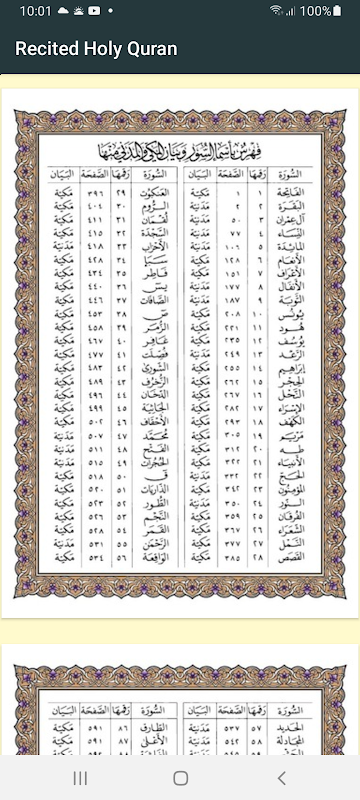 10:01 100%
Recited Holy Quran
فهرس بأسماء السور وبيان المكي والمدني منها
السُّورَة رَقمُهَا الصَّفحَة البَيَان السُّورَة رَقمُهَا الصَّفحَة البَيَان
الفَاتِحَة ١ ١ مَكيّة العَنكبوت ٢٩ ٣٩٦ مَكيّة
البَقَرَة ٢ ٢ مَدَنيّة الرُّوم ٣٠ ٤٠٤ مَكيّة
آل عِمرَان ٣ ٥٠ مَدَنيّة لُقمَان ٣١ ٤١١ مَكيّة
النِّسَاء ٤ ٧٧ مَدَنيّة السَّجدَة ٣٢ ٤١٥ مَكيّة
المَائدة ٥ ١٠٦ مَدَنيّة الأحزَاب ٣٣ ٤١٨ مَدَنيّة
الأنعَام ٦ ١٢٨ مَكيّة سَبَإ ٣٤ ٤٢٨ مَكيّة
الأعرَاف ٧ ١٥١ مَكيّة فَاطِر ٣٥ ٤٣٤ مَكيّة
الأنفَال ٨ ١٧٧ مَدَنيّة يسٓ ٣٦ ٤٤٠ مَكيّة
التَّوبَة ٩ ١٨٧ مَدَنيّة الصَّافات ٣٧ ٤٤٦ مَكيّة
يُونُس ١٠ ٢٠٨ مَكيّة صٓ ٣٨ ٤٥٣ مَكيّة
هُود ١١ ٢٢١ مَكيّة الزُّمَر ٣٩ ٤٥٨ مَكيّة
يُوسُف ١٢ ٢٣٥ مَكيّة غَافِر ٤٠ ٤٦٧ مَكيّة
الرَّعد ١٣ ٢٤٩ مَدَنيّة فُصِّلَت ٤١ ٤٧٧ مَكيّة
إبراهِيم ١٤ ٢٥٥ مَكيّة الشُّورى ٤٢ ٤٨٣ مَكيّة
الحِجر ١٥ ٢٦٢ مَكيّة الزُّخرُف ٤٣ ٤٨٩ مَكيّة
النَّحل ١٦ ٢٦٧ مَكيّة الدّخَان ٤٤ ٤٩٦ مَكيّة
الإسرَاء ١٧ ٢٨٢ مَكيّة الجَاثِيَة ٤٥ ٤٩٩ مَكيّة
الكهف ١٨ ٢٩٣ مَكيّة الأحقاف ٤٦ ٥٠٢ مَكيّة
مَريَم ١٩ ٣٠٥ مَكيّة مُحَمَّد ٤٧ ٥٠٧ مَدَنيّة
طه ٢٠ ٣١٢ مَكيّة الفَتح ٤٨ ٥١١ مَدَنيّة
الأنبيَاء ٢١ ٣٢٢ مَكيّة الحُجُرات ٤٩ ٥١٥ مَدَنيّة
الحَج ٢٢ ٣٣٢ مَدَنيّة قٓ ٥٠ ٥١٨ مَكيّة
المؤمنون ٢٣ ٣٤٢ مَكيّة الذّاريَات ٥١ ٥٢٠ مَكيّة
النُّور ٢٤ ٣٥٠ مَدَنيّة الطُّور ٥٢ ٥٢٣ مَكيّة
الفُرقان ٢٥ ٣٥٩ مَكيّة النَّجْم ٥٣ ٥٢٦ مَكيّة
الشُّعَرَاء ٢٦ ٣٦٧ مَكيّة القَمَر ٥٤ ٥٢٨ مَكيّة
النَّمل ٢٧ ٣٧٧ مَكيّة الرَّحمن ٥٥ ٥٣١ مَدَنيّة
القَصَص ٢٨ ٣٨٥ مَكيّة الواقِعَة ٥٦ ٥٣٤ مَكيّة
السُّورَة رَقمُهَا الصَّفحَة البَيَان السُّورَة رَقمُهَا الصَّفحَة البَيَان
الحَديد ٥٧ ٥٣٧ مَدَنيّة الطَّارق ٨٦ ٥٩١ مَكيّة
المجَادلة ٥٨ ٥٤٢ مَدَنيّة الأعلى ٨٧ ٥٩١ مَكيّة